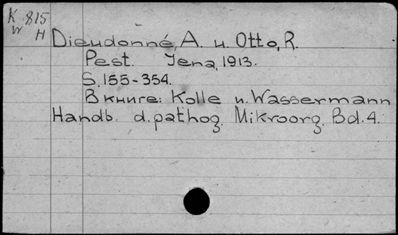 K 815
W H
Dieudonné, A. u. Otto, R.
Pest. Jena, 1913.
S. 155-354.
В книге: Kolle u. Wassermann
Handb. d. pathog. Mikroorg. Bd. 4.